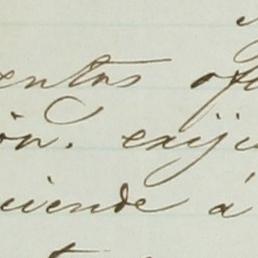 entas of
ón. exiji
viende á